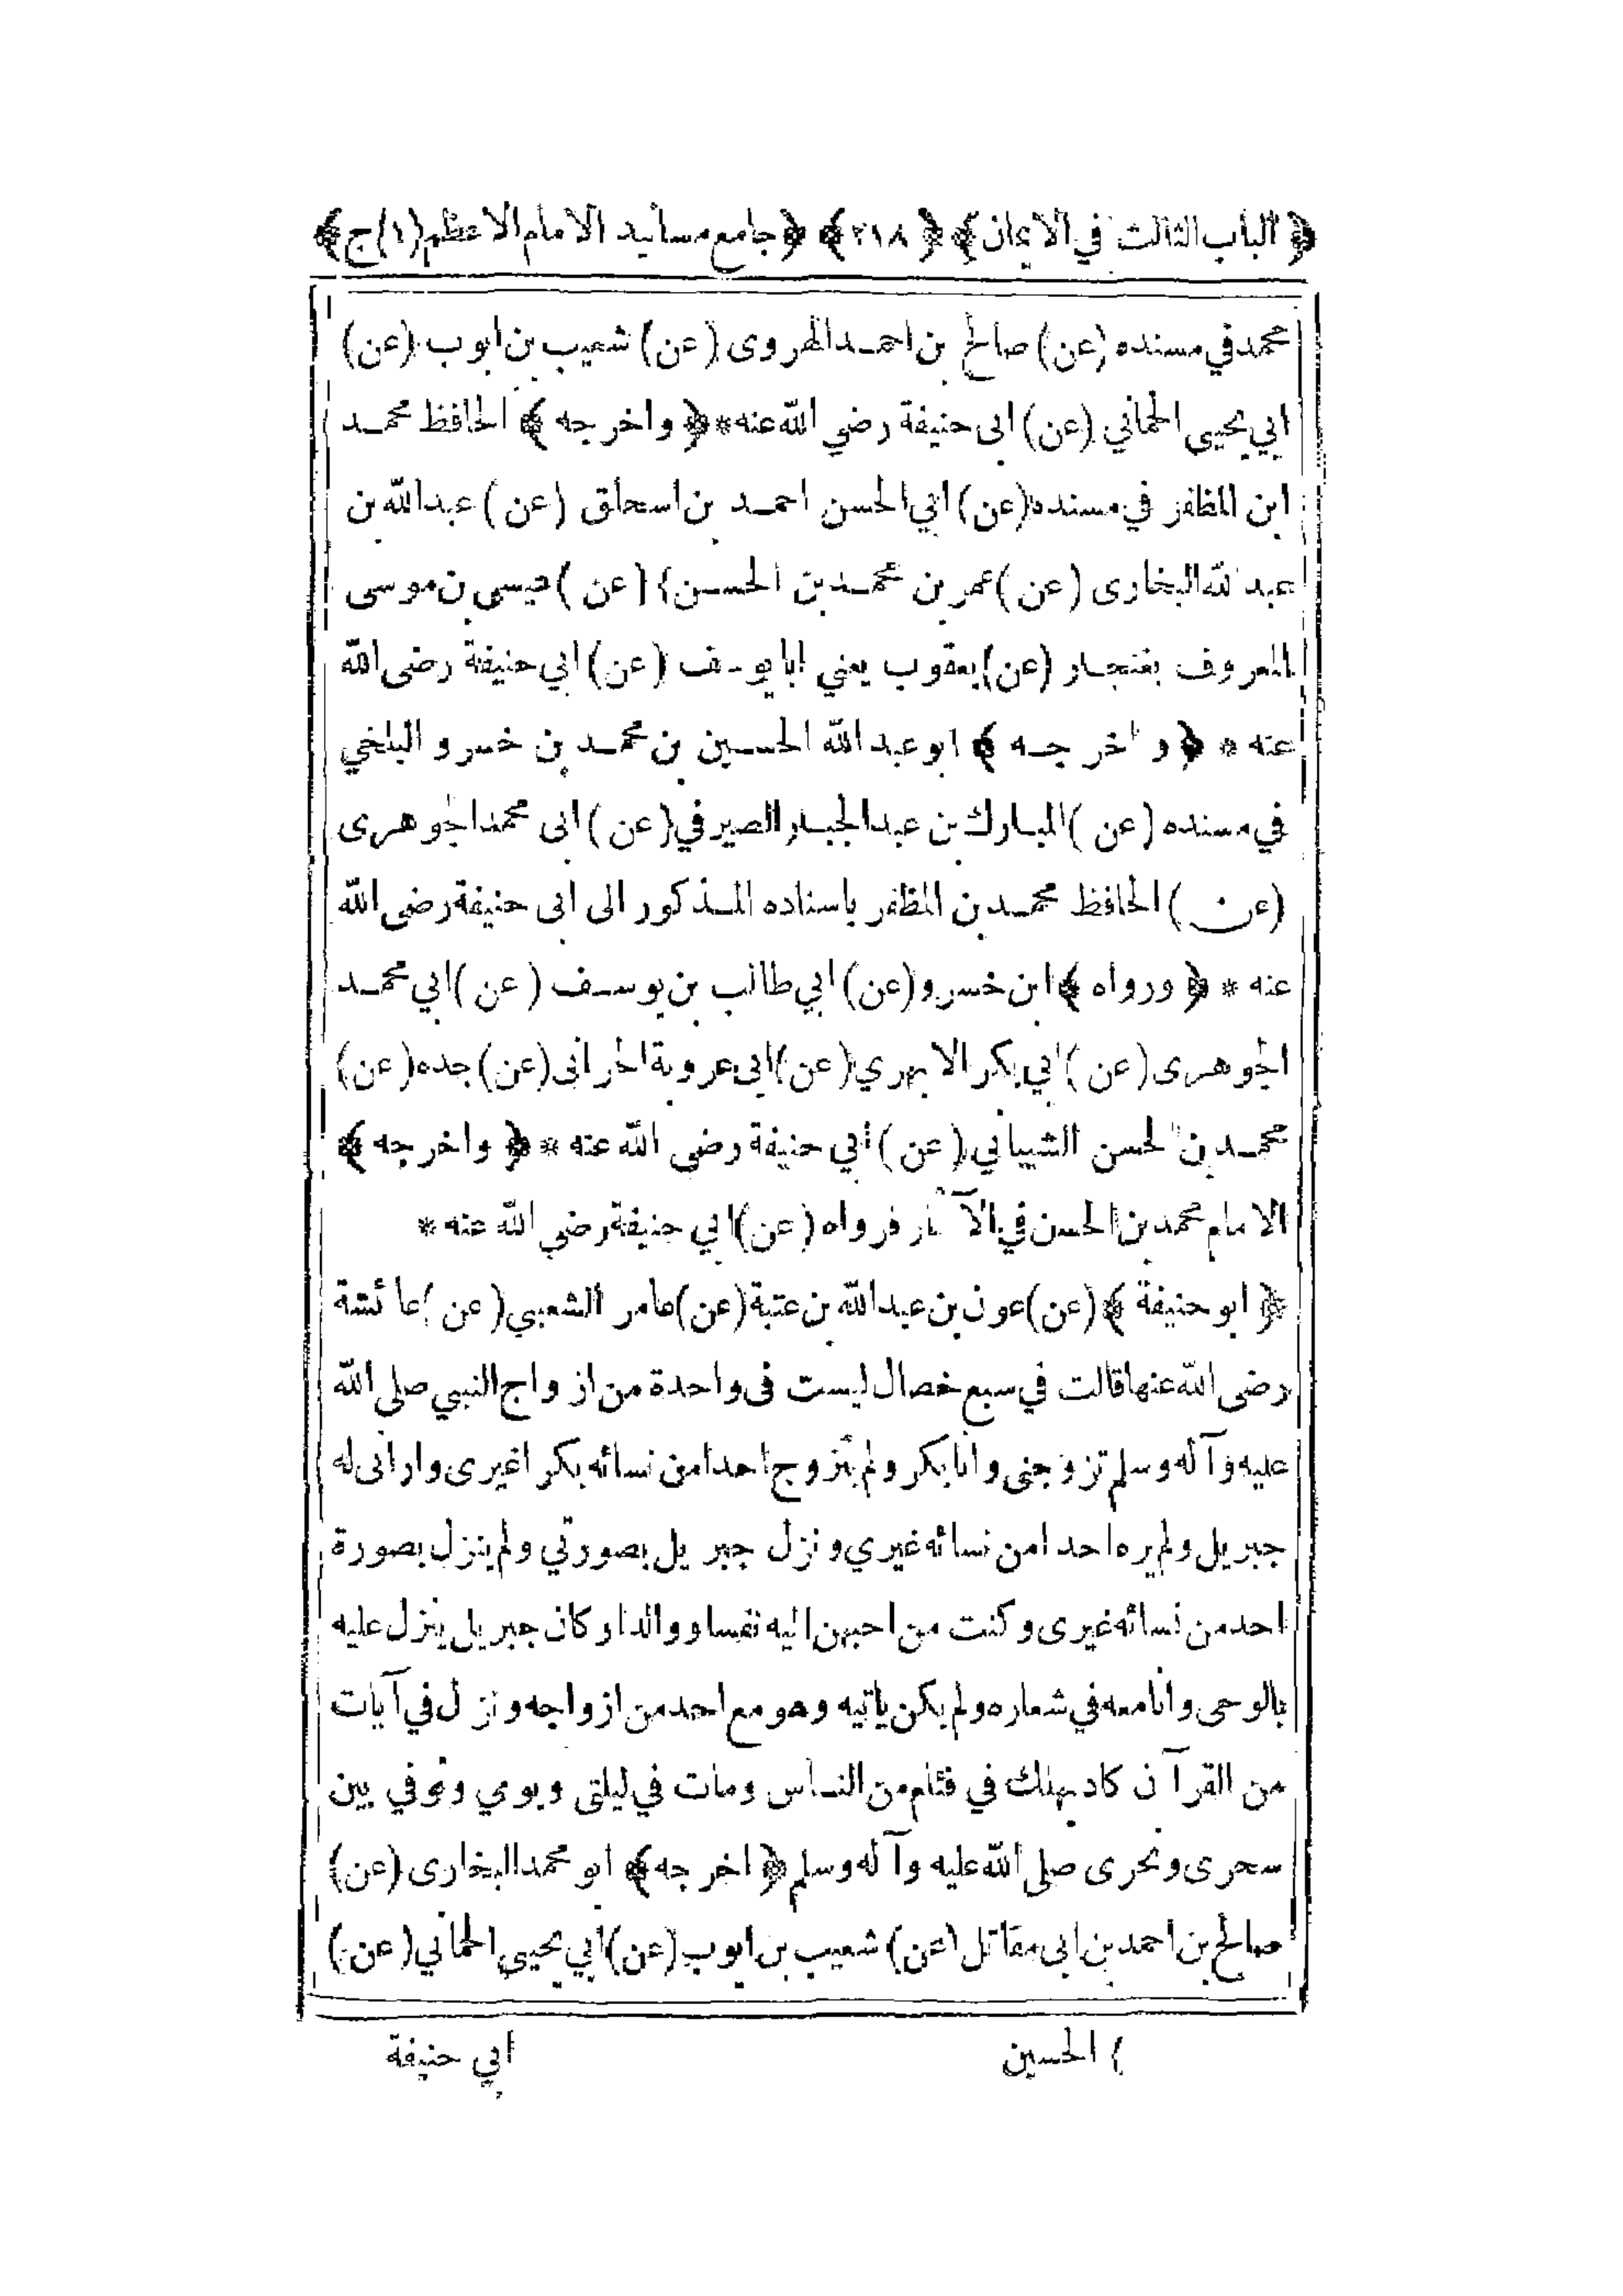 ﴿ الباب الثالث في الايمان ﴾ ﴿ ٢١٨ ﴾ ﴿ جامع مسانيد الامام الاعظم (١) ج ﴾
محمد في مسنده (عن) صالح بن احمد الهروى (عن) شعيب بن ايوب (عن)
ابي يحيى الحماني (عن) ابى حنيفة رضي الله عنه * ﴿ واخرجه ﴾ الحافظ محمد
ابن المظفر في مسنده (عن) ابي الحسن احمد بن اسحاق (عن) عبد الله بن
عبد الله البخارى (عن) عمر بن محمد بن الحسن) (عن) عيسى بن موسى
المعروف بغنجار (عن) يعقوب يعني ابا يوسف (عن) ابي حنيفة رضى الله
عنه * ﴿ واخرجه ﴾ ابو عبد الله الحسين بن محمد بن خسرو البلخي
في مسنده (عن) المبارك بن عبد الجبار الصيرفي (عن) ابى محمد الجوهرى
(عن) الحافظ محمد بن المظفر باسناده المذكور الى ابى حنيفة رضى الله
عنه * ﴿ ورواه ﴾ ابن خسرو (عن) ابي طالب بن يوسف (عن) ابي محمد
الجوهرى (عن) ابي بكر الابهري (عن) ابى عروبة الحرانى (عن) جده (عن)
محمد بن الحسن الشيباني (عن) ابي حنيفة رضى الله عنه * ﴿ واخرجه ﴾
الامام محمد بن الحسن في الآثار فرواه (عن) ابي حنيفة رضي الله عنه *
﴿ ابو حنيفة ﴾ (عن) عون بن عبد الله بن عتبة (عن) عامر الشعبي (عن) عائشة
رضى الله عنها قالت في سبع خصال ليست فى واحدة من ازواج النبي صلى الله
عليه وآله وسلم تزوجنى وانا بكر ولم يتزوج احدا من نسائه بكرا غيرى وارانى له
جبريل ولم يره احدا من نسائه غيري ونزل جبريل بصورتي ولم ينزل بصورة
احد من نسائه غيرى وكنت من احبهن اليه نفسا ووالدا وكان جبريل ينزل عليه
بالوحى وانا معه في شعاره ولم يكن ياتيه وهو مع احد من ازواجه ونزل في آيات
من القرآن كاد يهلك في فئام من الناس ومات في ليلتى ويومي وتوفي بين
سحرى ونحرى صلى الله عليه وآله وسلم ﴿ اخرجه ﴾ ابو محمد البخارى (عن)
صالح بن احمد بن ابى مقاتل (عن) شعيب بن ايوب (عن) ابي يحيى الحماني (عن)
) الحسين
ابي حنيفة